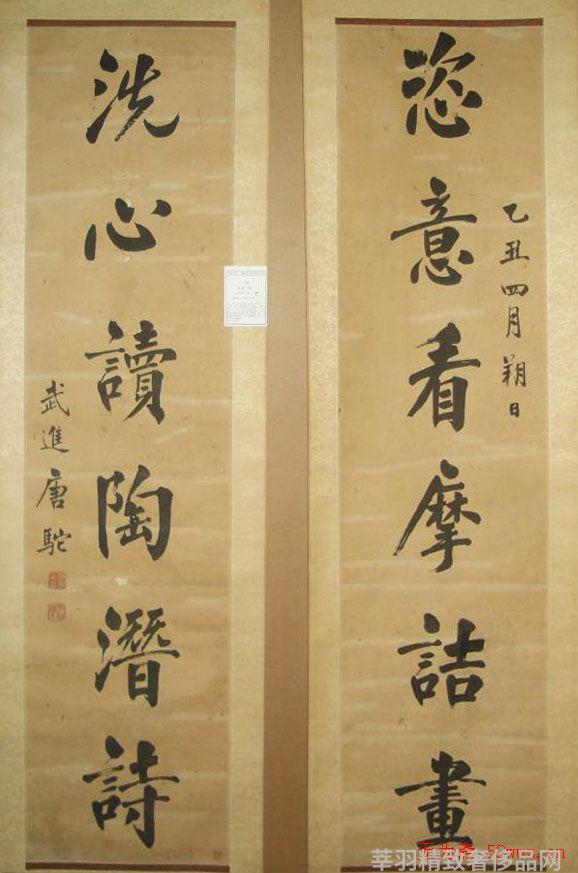 恣意看摩詰畫
乙丑四月朔日
洗心讀陶潛詩
武進唐駝
莘羽精致奢侈品网